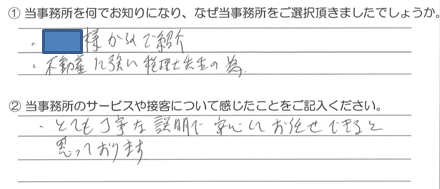 ① 当事務所を何でお知りになり、なぜ当事務所をご選択頂きましたでしょうか。
・ 様からのご紹介
・不動産に強い税理士先生の為
② 当事務所のサービスや接客について感じたことをご記入ください。
・とても丁寧な説明で安心してお任せできると
思っております